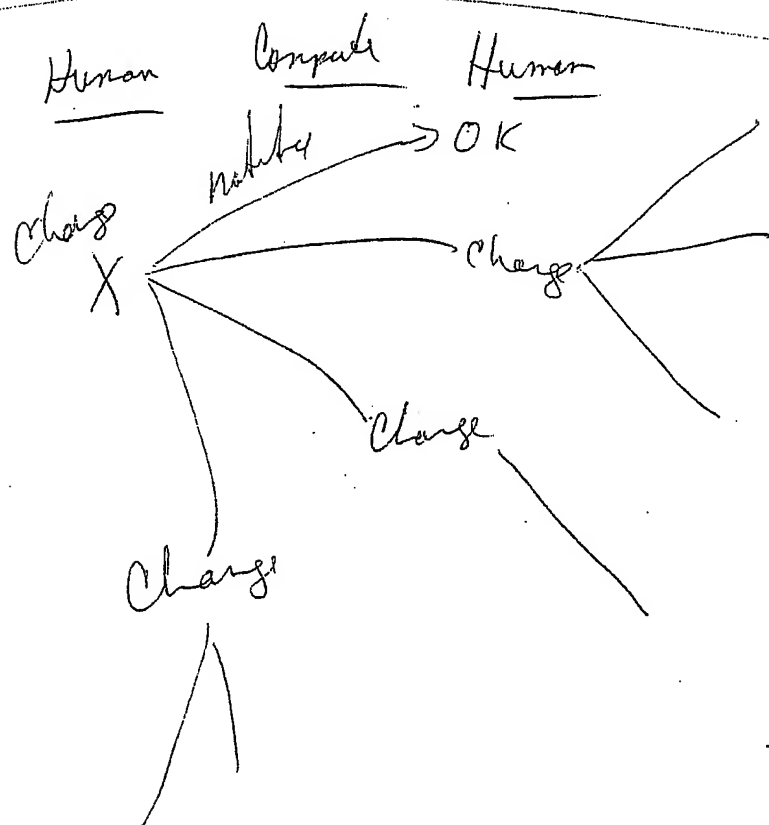 Human Compute Human
notify OK
Change
X Change
Change
Change